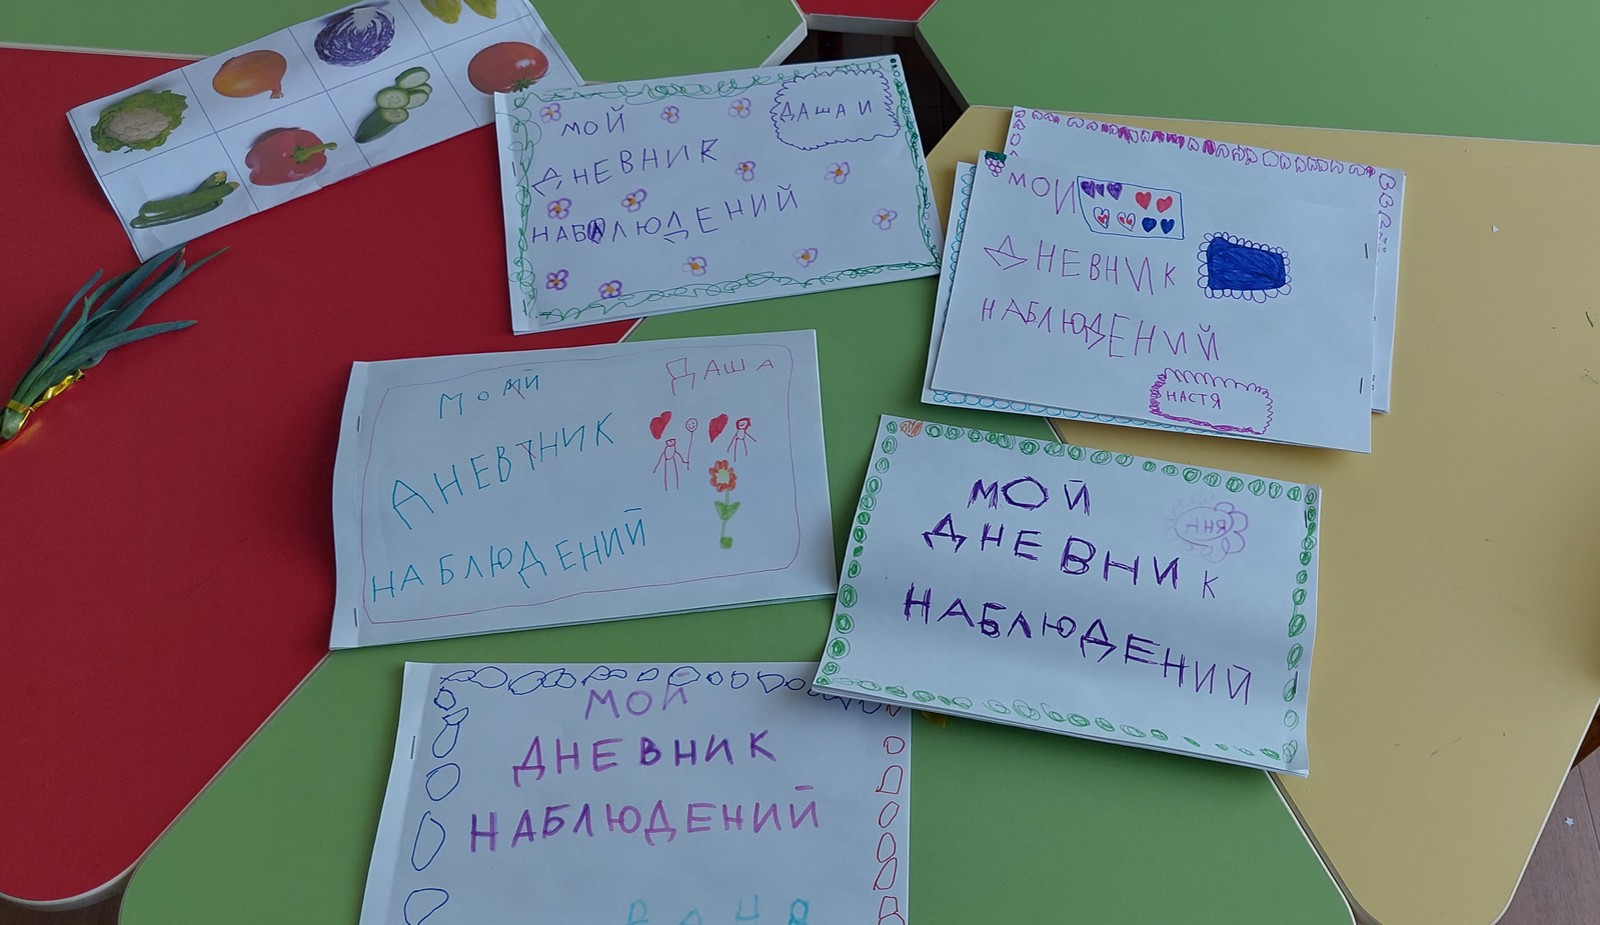 МОЙ
ДАША И
ДНЕВНИК
НАБЛЮДЕНИЙ
МОЙ
ДНЕВНИК
НАБЛЮДЕНИЙ
НАСТЯ
МОЙ
ДАША
ДНЕВНИК
НАБЛЮДЕНИЙ
МОЙ
ДНЕВНИК
НАБЛЮДЕНИЙ
МОЙ
ДНЕВНИК
НАБЛЮДЕНИЙ